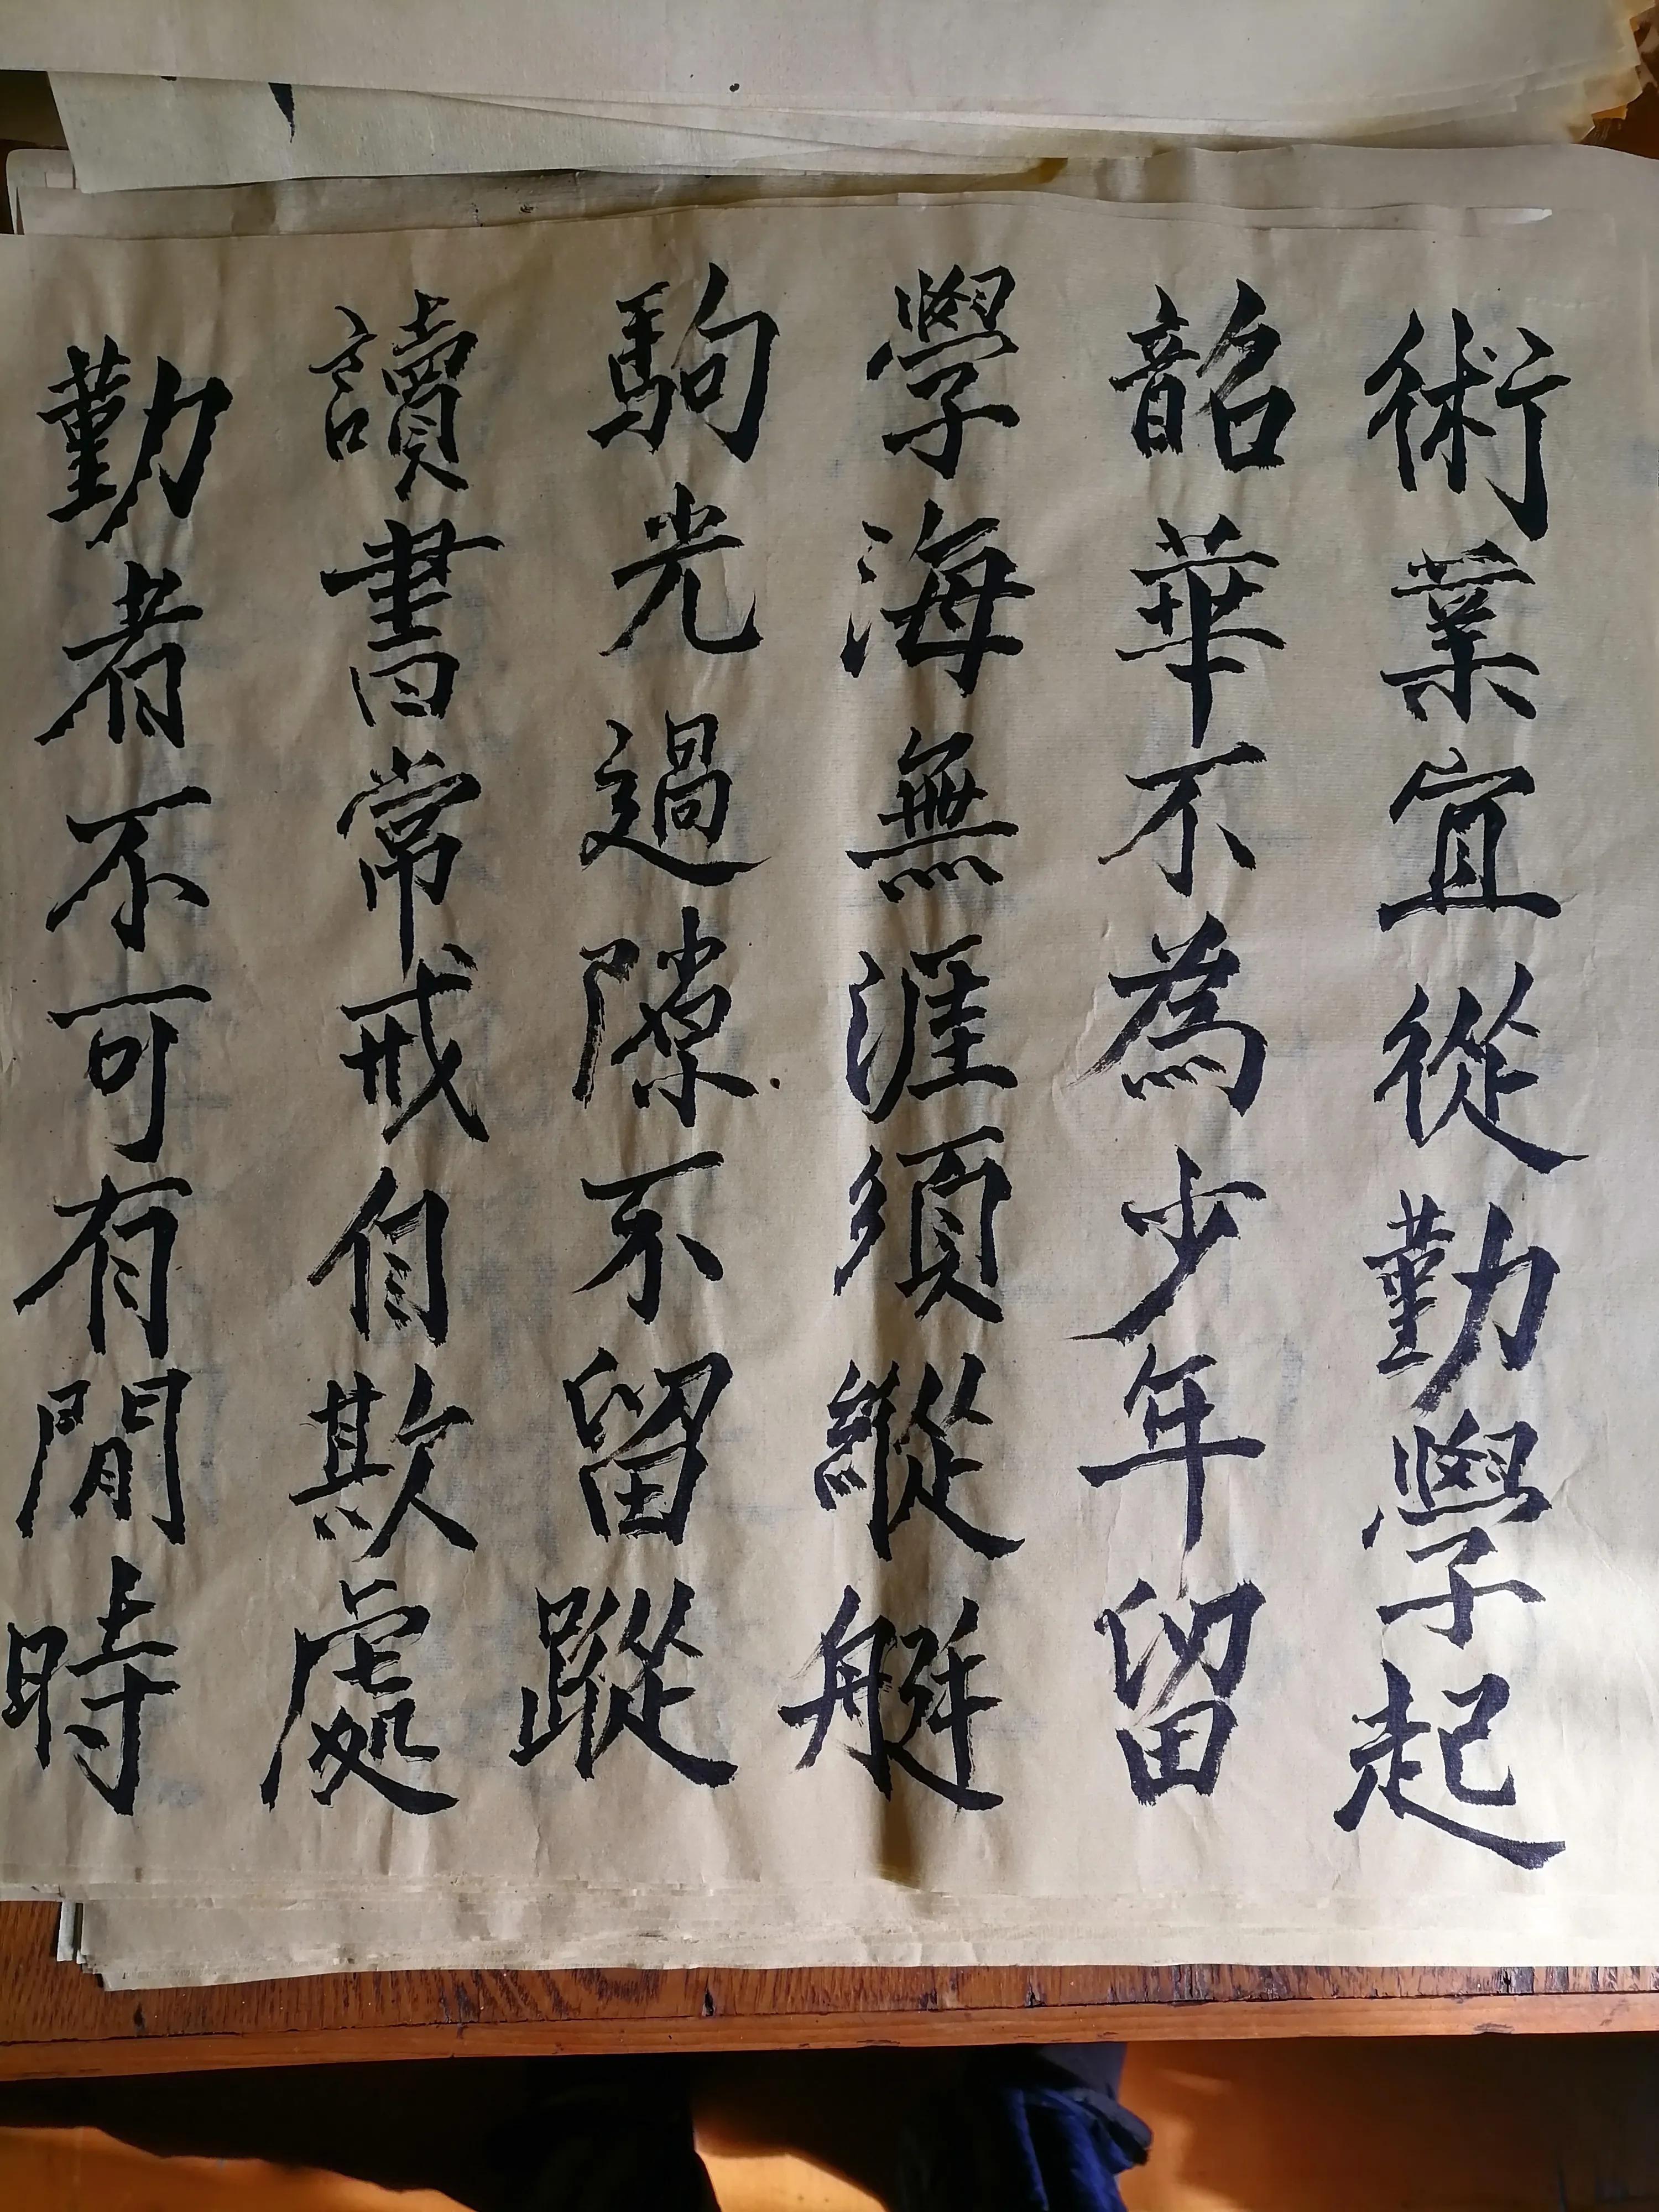 術業宜從勤學起
韶華不為少年留
學海無涯須縱艇
駒光過隙不留蹤
讀書常戒自欺處
勤者不可有閒時